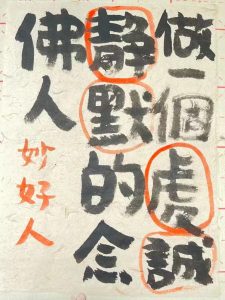 做一個虔誠
靜默的念
佛人
妙好人